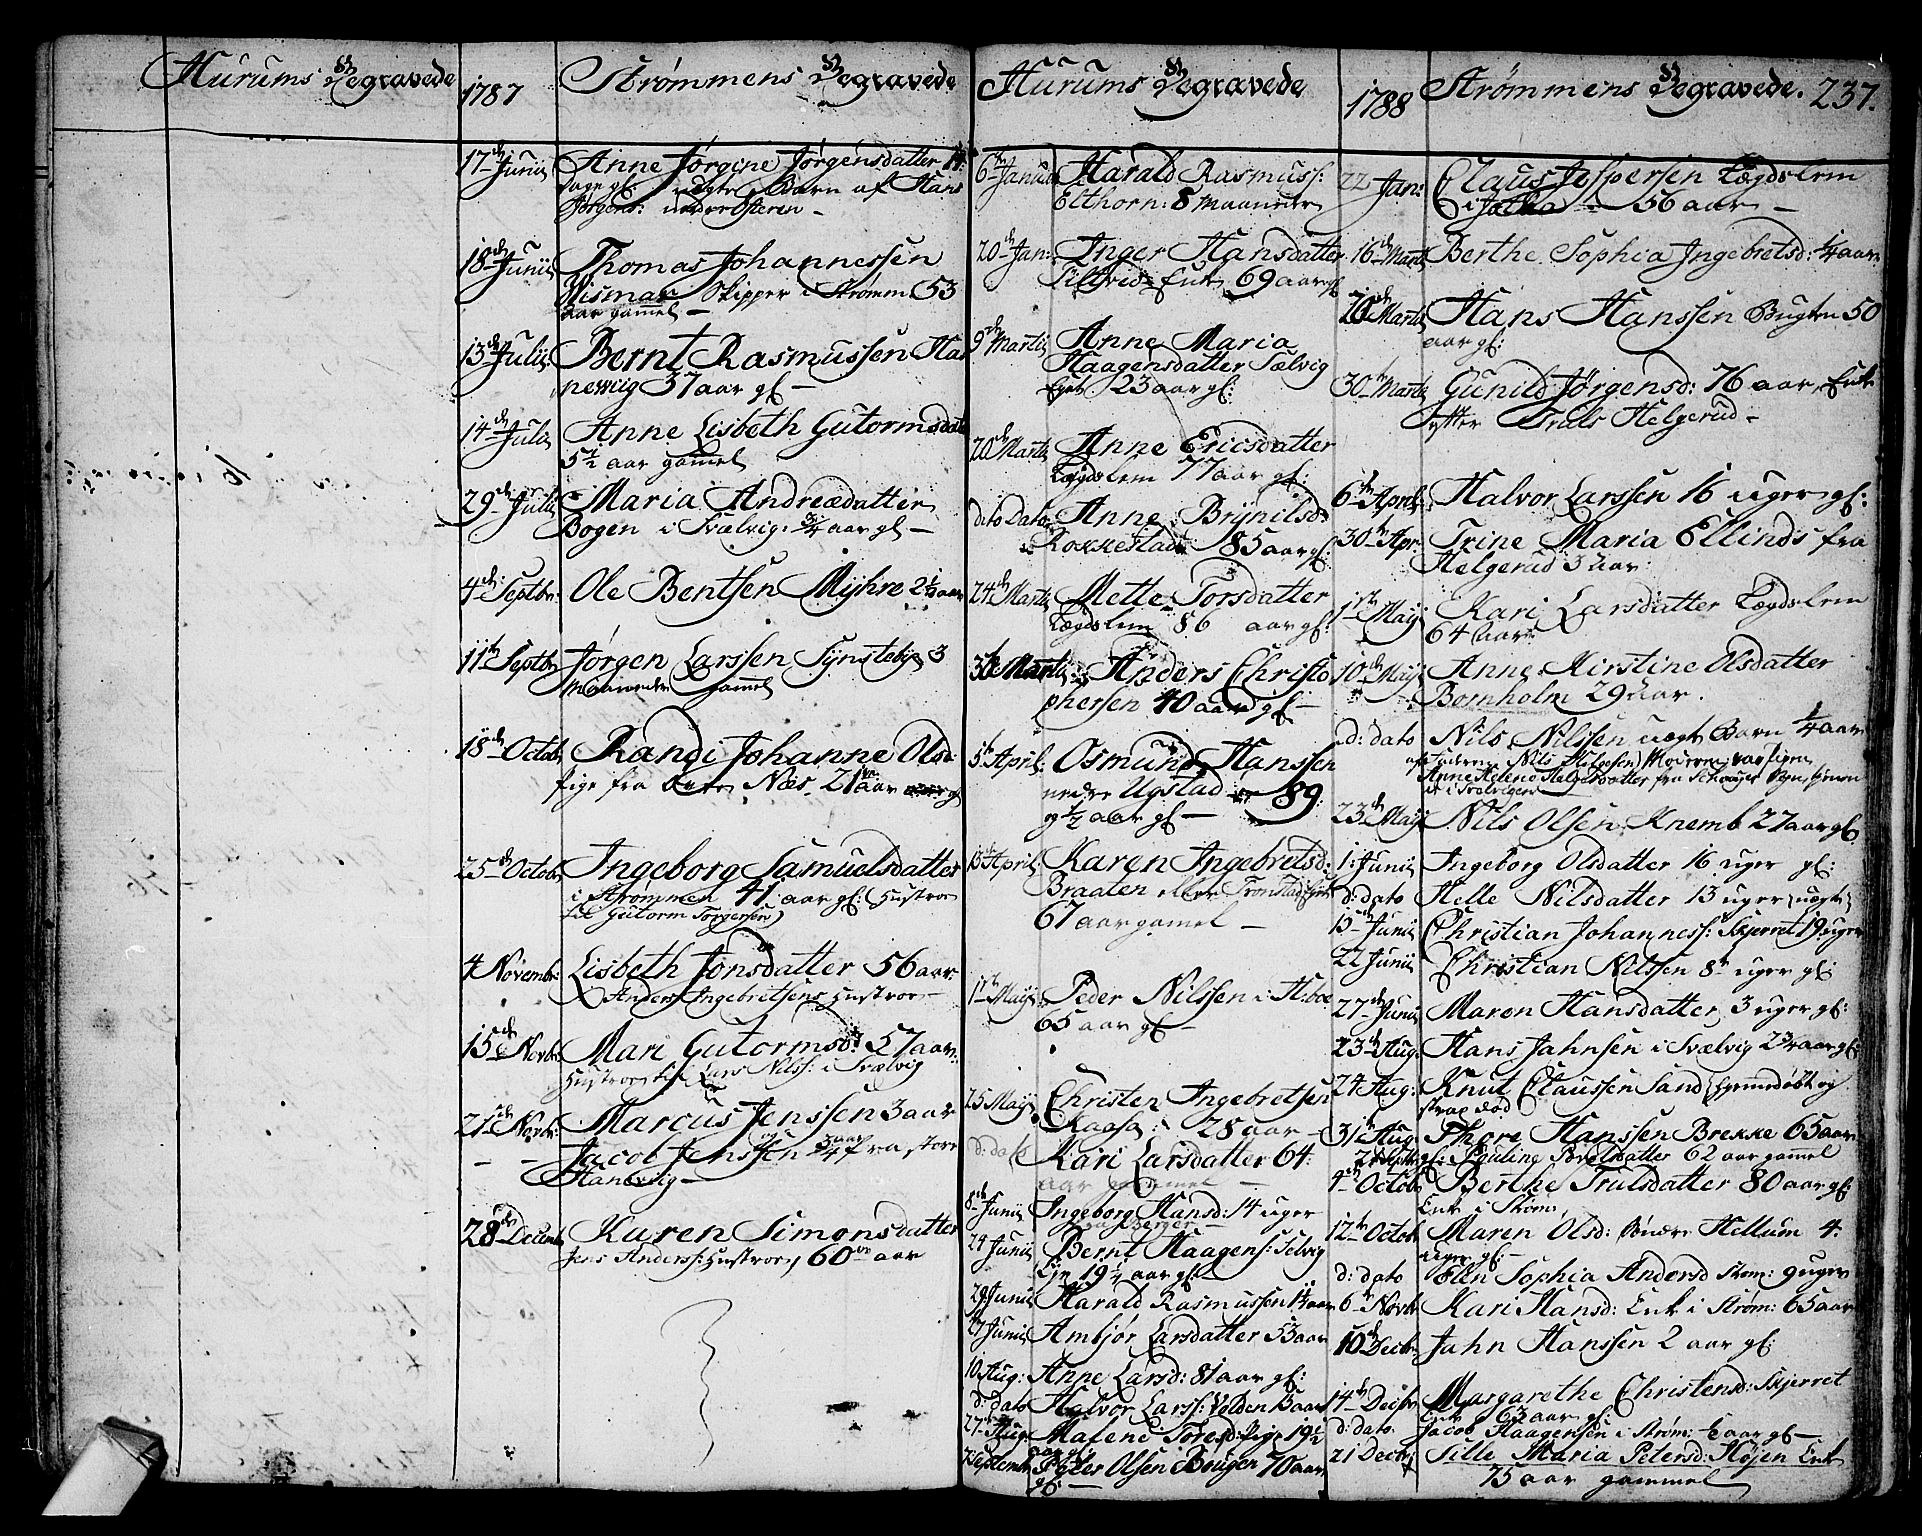 Hurums Begravede
1787
Strømmens Begravede
17de Junii Anne Jørgine Jørgensdatter 14
dage gl: uegte Barn af Hans
Jørgens:
18de Junii Thomas Johannessen
Wismar Skipper i Strømm: 53
aar gamel —
13de Julii Bernt Rasmussen Ha
nevig 37 aar gl —
14de Julii Anne Lisbeth Gutormsdat
5½ aar gamel
29de Julii Maria Andreædatter
Bogen i Svælvig: ¾ aar gl —
4de Septbr: Ole Bentsen Myhre 2½ aar
11te Septbr Jørgen Larssen Synsteby 3
Maaneder gamel
18de Octobr Randi Johanne Olsd:
pige fra Næs 21 aar gl
25de Octobr Ingeborg Samuelsdatter
i Strømmen 41 aar gl: Hustroe
til Gutorm Torgersen
4 Novembr: Lisbeth Jonsdatter 56 aar
Anders Ingebretsens Hustroe —
15de Novbr Mari Gutormsd: 57 aar
Hustroe til Lars Nilss: i Svælvig
21de Novbr: Marcus Jenssen 3 aar
— — og Jacob Jenssen ¾ aar fra store
Hanevig —
28de Decemb Karen Simonsdatter
Jens Anderss: Hustroe, 60 aar
Hurums Begravede
1788
6te Januar Harald Rasmuss:
Elthorn: 8 Maaneder
20de Jan: Inger Hansdatter
Enke 69 aar gl
9de Martii Anne Maria
Haagensdatter Sælvig
Eyet 23 aar gl:
20de Martii Anne Ericsdatter
Lægdslem 77 aar gl:
dito Dato Anne Brynilsd:
Rokkestad 85 aar gl:
24de Martii Mette Torsdatter
Lægdslem 86 aar gl:
30te Martii Anders Christo
phersen 40 aar gl —
5te April: Osmund Hanssen
nedre Ugstad 89
og ½ aar gl —
13de April: Karen Ingebretsd:
Braaten eller Tronstad
67 aar gamel —
1ste Maji Peder Nilssen i Hiboe
65 aar gl —
25 Maji Christen Ingebretsen
Kaasa: 28 aar —
d: dato Kari Larsdatter 64
aar gamel —
8de Junii Ingeborg Hansd: 14 uger
Berger —
24 Junii Bernt Haagens: Selvig
Eje 19¼ aar gl:
29 Junii Harald Rasmussen 1½ aar
27 Junii Ambjør Larsdatter 53 aar
10 Aug: Anne Larsd: 81 aar gl:
d: dato Halvor Larss: Volden aar
27de Aug: Malene Toresd: Pige 19½
aar gl
Septembr: Peder Olsen Bougen 70 aar
gl: —
Strømmens Begravede. 237.
22 Jan: Claus Jespersen Lægdslem
56 aar —
16de Martii Berthe Sophia Ingebretsd: ¼ aar
20de Martii Hans Hanssen Bugten 50
aar gl:
30te Martii Gunild Jørgensd: 76 aar, Enke
efter Truls Helgerud —
6te April: Halvor Larssen 16 uger gl:
30te Apr: Trine Maria Ellinds fra
Helgerud 3 aar
1ste Maji Kari Larsdatter Lægdslem
64 aar
10de Maji Anne Kirstine Olsdatter
Bornholm 29 aar.
d: dato Nils Nilssen uegte Barn ¼ aar
Faderen Nils Moderen var Pigen
Anne Helene fra
i Svelvigen
23de Maji Nils Olsen Knemb 27 aar gl
1: Junii Ingeborg Olsdatter 16 uger gl:
d: dato Helle Nilsdatter 13 uger uegte
15de Junii Christian Johanness: Skjerret 19 uger
22 Junii Christian Nilssen 8te uger gl:
27de Junii Maren Hansdatter, 3 uger gl:
23de Aug: Hans Jahnsen i Svælvig 2¾ aar gl:
24 Aug: Knut Claussen Sand hjemmedøbt og
strax død
31te Aug: Thore Hanssen Brekke 65 aar
gl: Pauline Povelsdatter 62 aar gamel
4de Octobr Berthe Trulsdatter 80 aar gl:
Enke i Strøm,
12te Octobr Maren Olsd: Søndre Hellum 4.
uger gl: —
d: dato Elen Sophia Andersd Strøm: 9 uger
6te Novbr Kari Hansd: Enke i Strøm: 65 aar
10de Decbr Jahn Hanssen 2 aar gl:
14de Decbr Margarethe Christensd: Skjerret
Enke 63 aar gl:
d: dato Jacob Haagensen i Strøm: aar gl —
21 Decbr Sille Maria Petersd: Høyen Enke
75 aar gammel